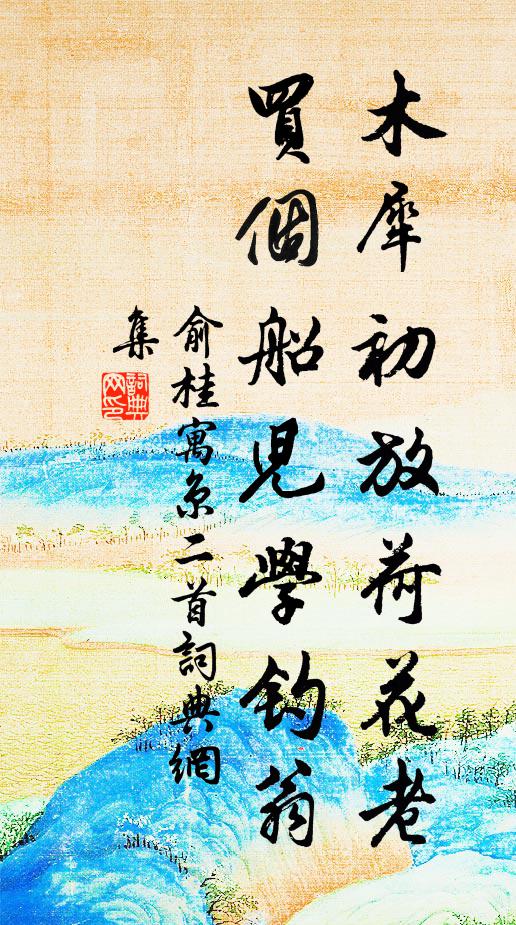 木犀初放荷花老
買個船兒學釣翁
俞桂寓系二首詞典網
集
詞典
网印